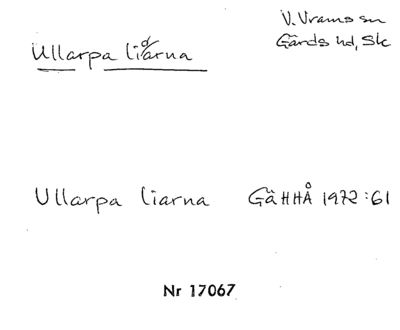 V. Vrams sn
Ullarpa liarna
Gärds hd, Sk
Ullarpa liarna GäHHÅ 1972:61
Nr 17067